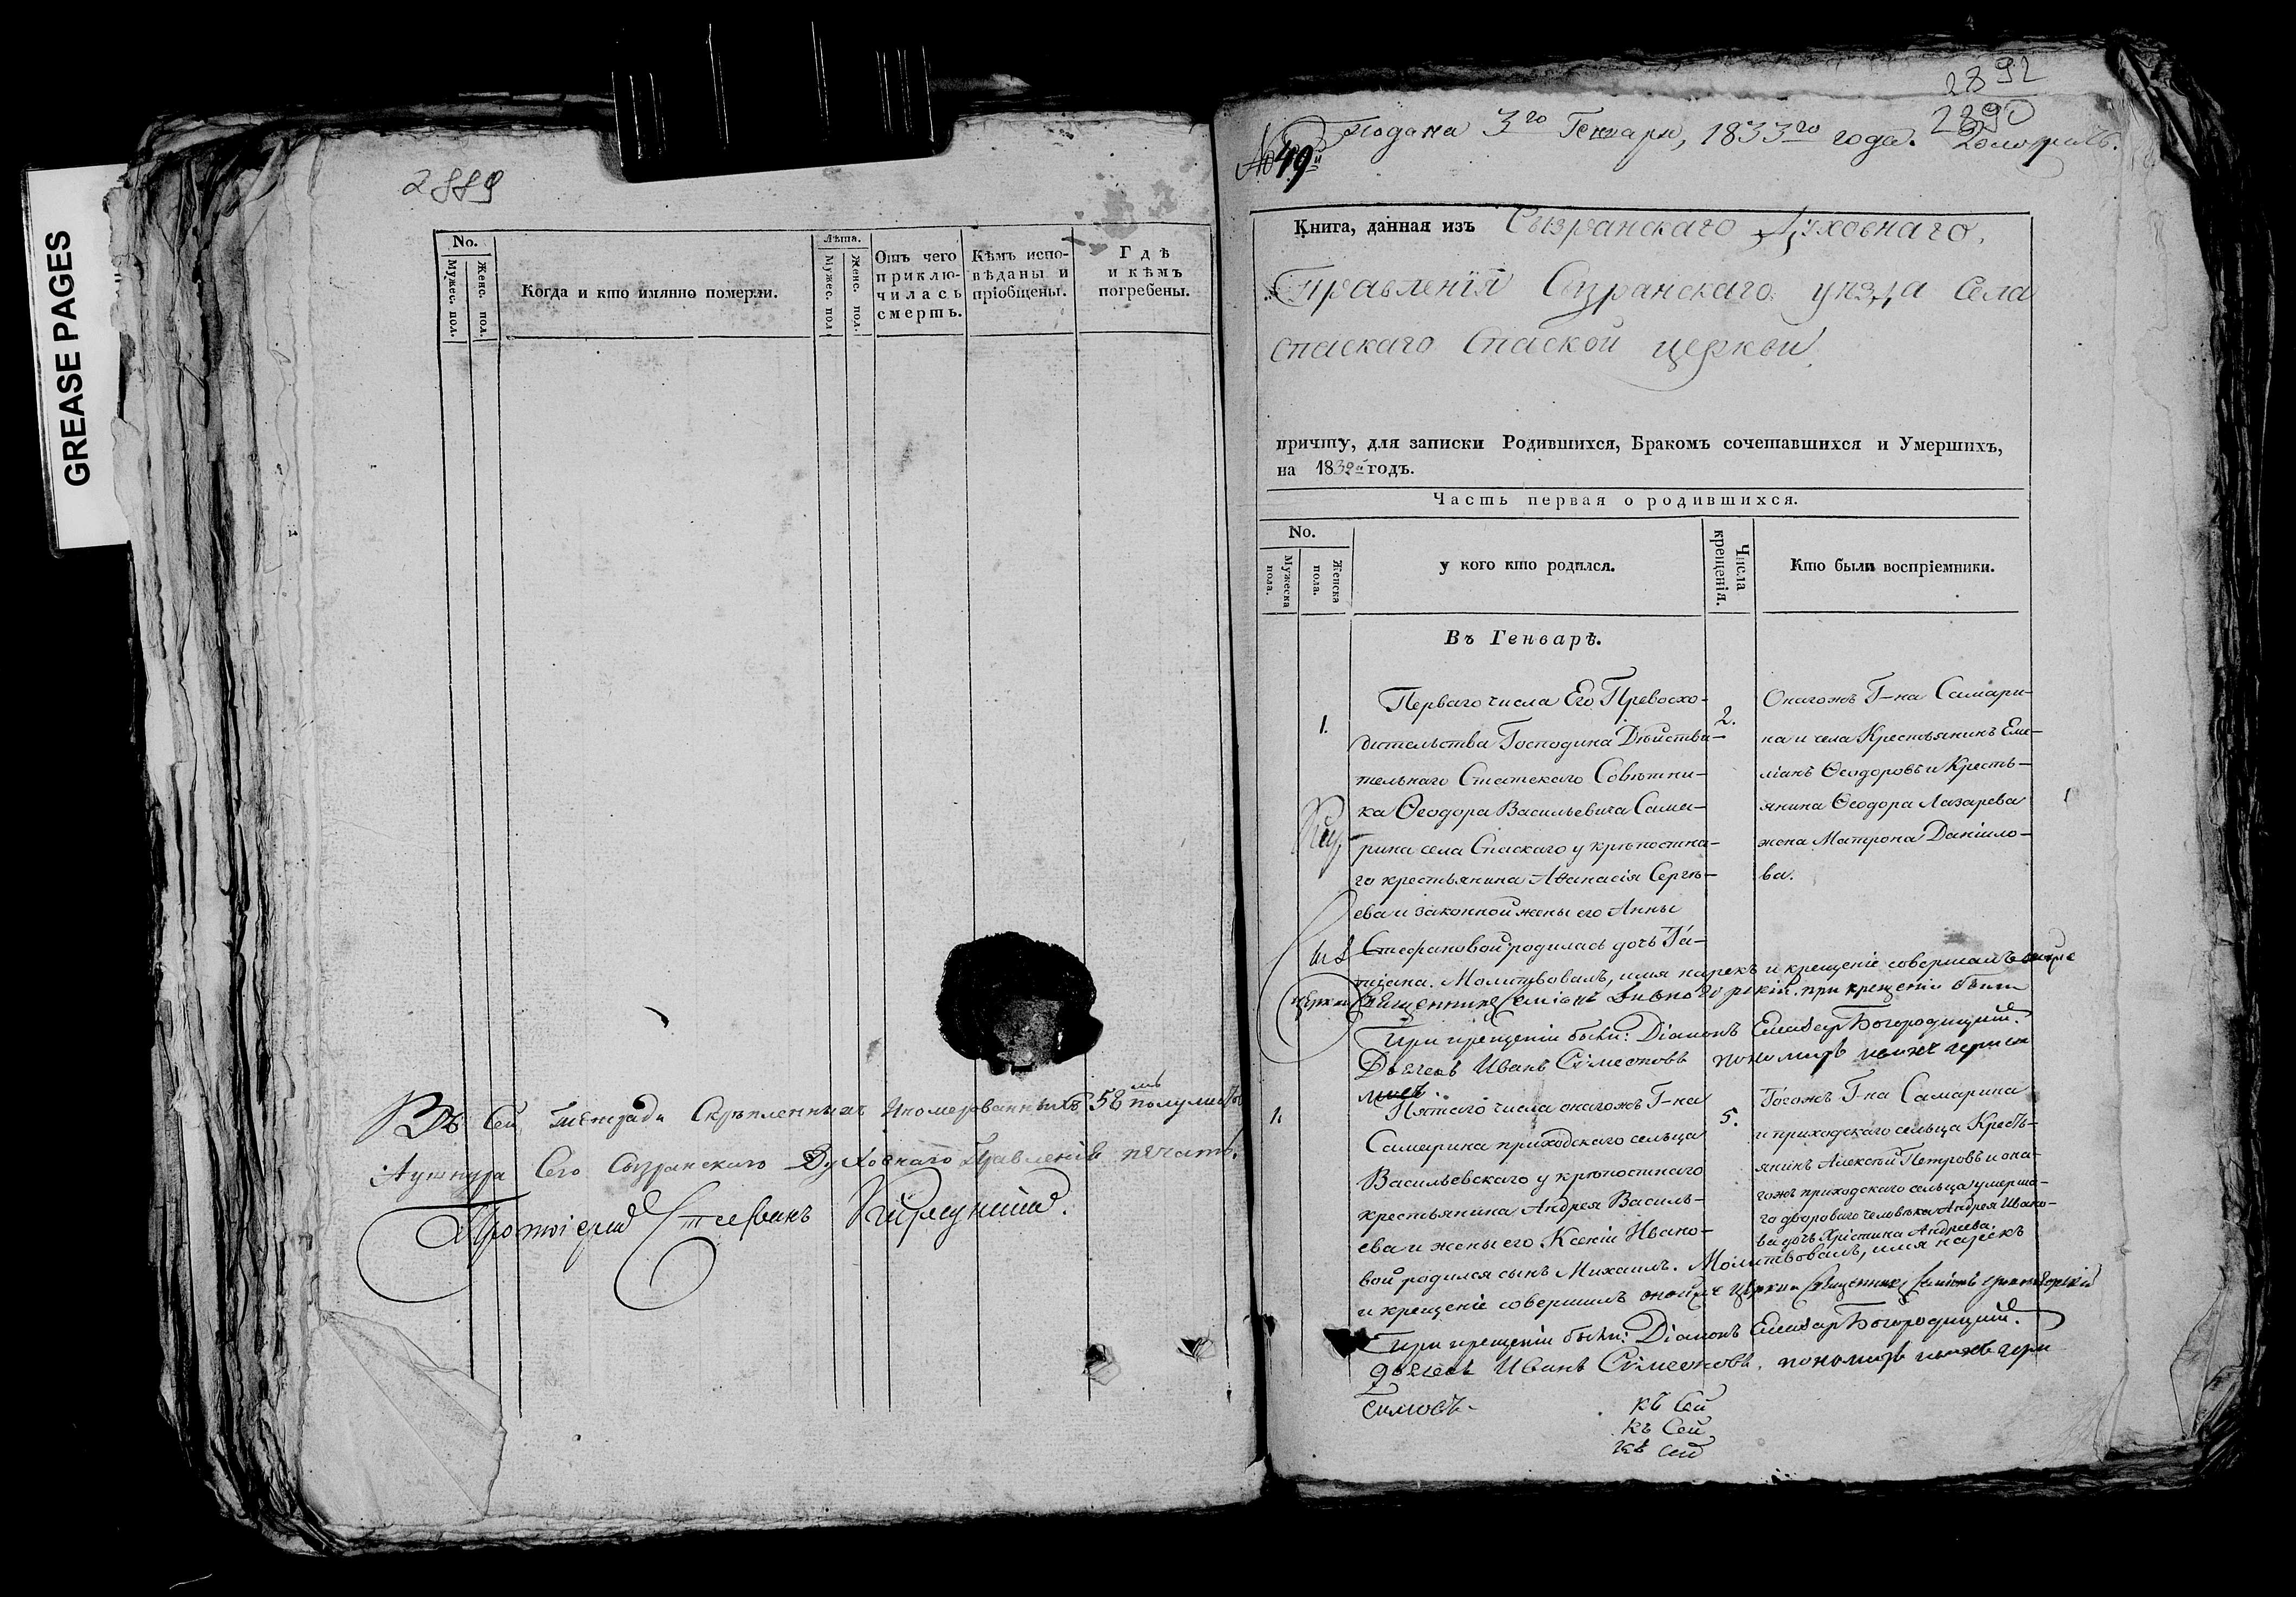 GREASE PAGES
2889
No.
Мужес. пол.
Женс. пол.
Когда и кто имянно померли.
Лѣта.
Мужес. пол
Женс. пол.
Отъ чего
приклю-
чилась
смерть.
Кѣмъ испо-
вѣданы и
пріобщены.
Гдѣ
и кѣмъ
погребены.
Въ сей тетради скрѣпленныхъ 58 полулистовъ
Сего Сызранскаго Духовнаго Правленія печать.
Протоіерей Стефанъ
2892
2890
Подана 3го Генваря, 1833го года.
№ 49й
Книга, данная изъ Сызранскаго Духовнаго
Правленія Сызранскаго уѣзда села
Спаскаго Спаской церкви
причту, для записки Родившихся, Бракомъ сочетавшихся и Умершихъ,
на 1832й годъ.
Часть первая о родившихся.
No.
Мужеска
пола.
Женска
пола.
у кого кто родился.
Числа
крещенія.
Кто были воспріемники.
Въ Генварѣ.
1.
Перваго числа Его Превосхо-
дительства Господина Дѣйстви-
тельнаго Статскаго Совѣтни-
ка Ѳеодора Васильевича Сама-
рина села Спаскаго у крѣпостна-
го крестьянина Аѳанасія Сергѣ-
ева и законной жены его Анны
Стефановой родилась дочь Та-
тіана. Молитвовалъ, имя нарекъ и крещеніе совершилъ
церкви Священникъ при крещеніи были
При крещеніи были: Діаконъ Елиазаръ Богородицкій.
Дьячекъ Иванъ Сѵмеоновъ пономарь
2.
Онагожъ Г-на Самари-
на и села Крестьянинъ Еме-
ліанъ Ѳеодоровъ и Кресть-
янина Ѳеодора Лазарева
жена Матрона Даніило-
ва.
1.
Пятаго числа онагожъ Г-на
Самарина приходскаго сельца
Васильевскаго у крѣпостнаго
крестьянина Андрея Василь-
ева и жены его Ксеніи Ивано-
вой родился сынъ Михаилъ. Молитвовалъ, имя нарекъ
и крещеніе совершилъ онойже церкви Священникъ
При крещеніи были: Діаконъ Елиазаръ Богородицкій.
Дьячекъ Иванъ Сѵмеоновъ. пономарь
5.
Тогожъ Г-на Самарина
и приходскаго сельца Кресть-
янинъ Алексѣй Петровъ и она-
гожъ приходскаго сельца умерша-
го двороваго человѣка Андрея Ивано-
ва дочь Христина Андреева.
къ сей
къ сей
къ сей